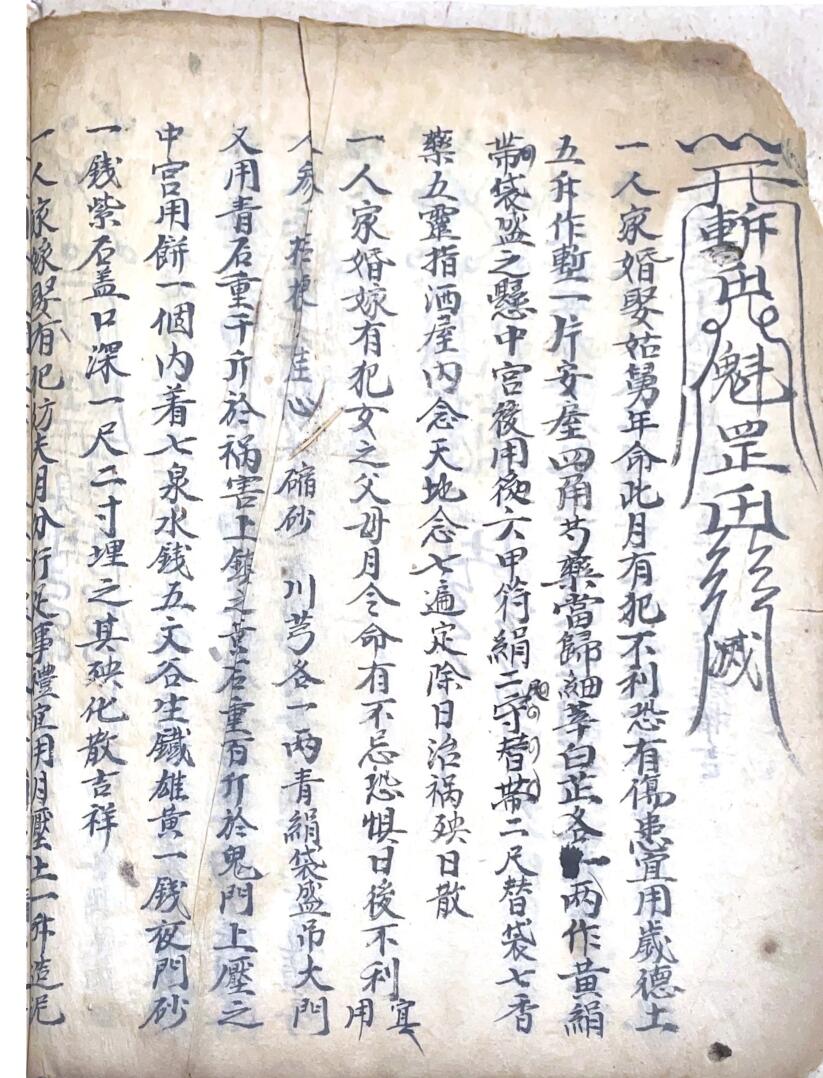 斬鬼魁罡滅
一人家婚娶姑舅年命此月有犯不利恐有傷患宜用歲德土
五升作塹一片安屋四角芍藥當歸細莘白芷各一兩作黃絹
帶袋盛之懸中宮後用後六甲符絹二守替帶二尺替袋七香
藥五靈指洒屋內念天地念七遍定除日治禍殃日散
一人家婚嫁有犯女之父母月令命有不忌恐惧日後不利宜用
人參 桔梗 硇砂 川芎各一兩青絹袋盛吊大門
又用青石重千斤於禍害上鎮之黃石重百斤於鬼門上壓之
中宮用餅一個內着七泉水錢五文谷生鐵雄黃一錢夜門砂
一錢紫石盖口深一尺二寸埋之其殃化散吉祥
一人家嫁娶有犯妨夫月分行此事禮宜用月壓土一升造泥